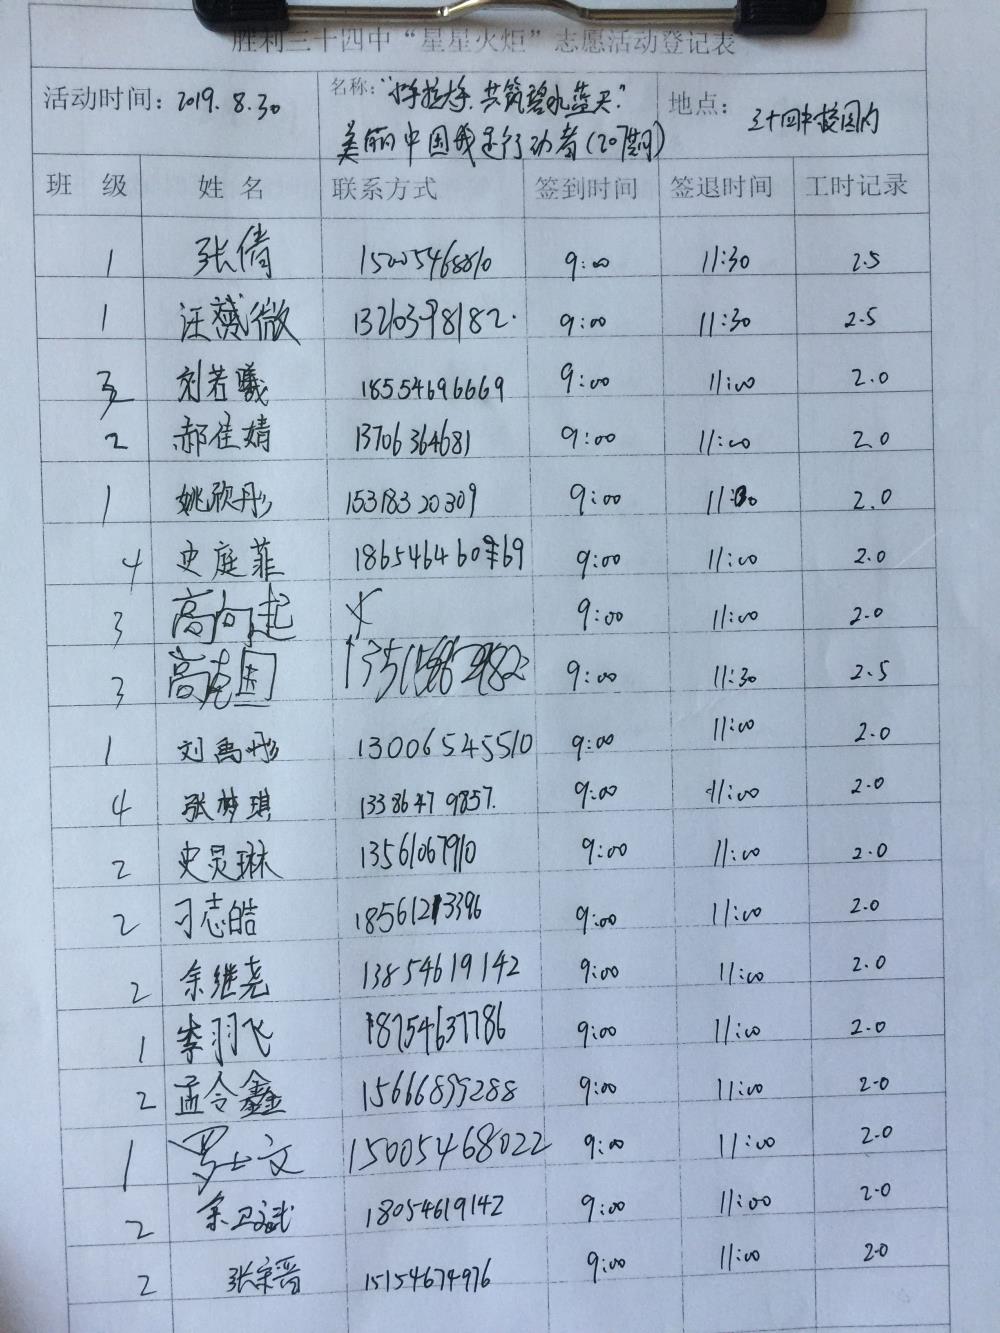 胜利三十四中“星星火炬”志愿活动登记表
活动时间：2019.8.30 名称：“手拉手.共筑碧水蓝天.” 地点：三十四中校园内
美丽中国我是行动者(207期)
班 级 姓 名 联系方式 签到时间 签退时间 工时记录
1 张倩 15005468810 9:00 11:30 2.5
1 汪薇 13210398182. 9:00 11:30 2.5
3 刘若曦 18554696669 9:00 11:00 2.0
2 郝佳婧 13706364681 9:00 11:00 2.0
1 姚欣彤 15318320309 9:00 11:00 2.0
4 史庭菲 186546460 69 9:00 11:00 2.0
3 高向起 X 9:00 11:00 2.0
3 高克国 9:00 11:30 2.5
1 刘禹彤 13006545510 9:00 11:00 2.0
4 张梦琪 13386479857. 9:00 11:00 2.0
2 史灵琳 13561067910 9:00 11:00 2.0
2 刁志皓 18561213396 9:00 11:00 2.0
2 余继尧 13854619142 9:00 11:00 2.0
1 李羽飞 18754637786 9:00 11:00 2.0
2 孟令鑫 15666899288 9:00 11:00 2.0
1 文 15005468022 9:00 11:00 2.0
2 余卫斌 18054619142 9:00 11:00 2.0
2 张宗晋 15154674976 9:00 11:00 2.0